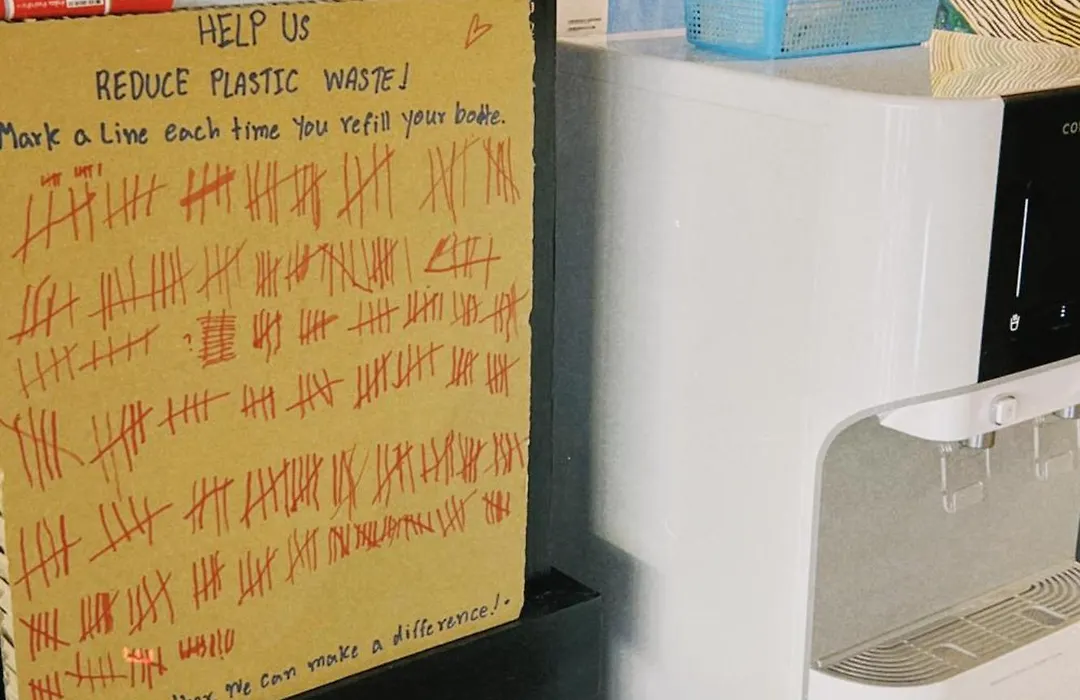 HELP US
REDUCE PLASTIC WASTE!
Mark a Line each time You refill your bottle.
?
We can make a difference!.